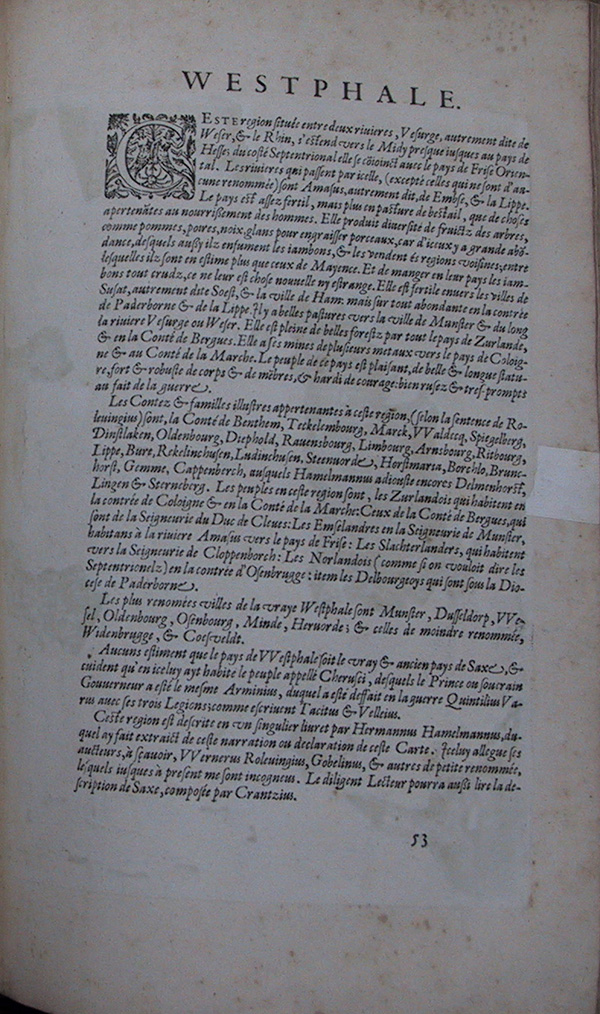 WESTPHALE.
CESTE region située entre deux rivieres, Vesurge, autrement dite de
Weser, & le Rhin, s'estend vers le Midy presque iusques au pays de
Hesse; du costé Septentrional elle se cōioinct avec le pays de Frise Orien-
tal. Les rivieres qui passent par icelle, (excepté celles qui ne sont d'au-
cune renommée) sont Amasus, autrement dit, de Embse, & la Lippe.
Le pays est assez fertil, mais plus en pasture de bestail, que de choses
apertenātes au nourrissement des hommes. Elle produit diversité de fruictz des arbres,
comme pommes, poires, noix, glans pour engraisser porceaux, car d'iceux y a grande abō-
dance, desquels aussy ilz enfument les iambons, & les vendent és regions voisines, entre
lesquelles ilz sont en estime plus que ceux de Mayence. Et de manger en leur pays les iam-
bons tout crudz, ce ne leur est chose nouvelle ny estrange. Elle est fertile envers les villes de
Susat, autrement dite Soest, & la ville de Ham: mais sur tout abondante en la contrée
de Paderborne & de la Lippe. Il y a belles pastures vers la ville de Munster & du long
la riviere Vesurge ou Weser. Elle est pleine de belles forestz par tout le pays de Zurlande,
& en la Conté de Bergues. Elle a ses mines de plusieurs metaux vers le pays de Coloig-
ne & au Conté de la Marche. Le peuple de ce pays est plaisant, de belle & longue statu-
re, fort & robuste de corps & de mēbres, & hardi de courage: bien rusez & tres-prompts
au fait de la guerre.
Les Contez & familles illustres appertenantes à ceste region, (selon la sentence de Ro-
leuingius) sont, la Conté de Benthem, Teckelembourg, Marck, VValdecq, Spiegelberg,
Dinstlaken, Oldenbourg, Diephold, Rauensbourg, Limbourg, Arnsbourg, Ritbourg,
Lippe, Bure, Rekelinchusen, Ludinchusen, Steenuorde, Horstmaria, Borchlo, Brunc-
horst, Gemme, Cappenberch, ausquels Hamelmannus adiouste encores Delmenhorst,
Lingen & Sterneberg. Les peuples en ceste region sont, les Zurlandois qui habitent en
la contrée de Coloigne & en la Conté de la Marche: Ceux de la Conté de Bergues, qui
sont de la Seigneurie du Duc de Cleues: Les Emselandres en la Seigneurie de Munster,
habitans à la riviere Amasus vers le pays de Frise: Les Slachterlanders, qui habitent
vers la Seigneurie de Cloppenborch: Les Norlandois (comme si on vouloit dire les
Septentrionelz) en la contrée d'Osenbrugge: item les Delbourgeoys qui sont sous la Dio-
cese de Paderborne.
Les plus renomées villes de la vraye Westphale sont Munster, Dusseldorp, VVe-
sel, Oldenbourg, Osenbourg, Minde, Heruorde; & celles de moindre renommée,
Widenbrugge, & Coesveldt.
Aucuns estiment que le pays de VVestphale soit le vray & ancien pays de Saxe, &
cuident qu'en iceluy ayt habité le peuple appellé Cherusci, desquels le Prince ou souverain
Gouuerneur a esté le mesme Arminius, duquel a esté deffait en la guerre Quintilius Va-
rus avec ses trois Legions; comme escriuent Tacitus & Velleius.
Ceste region est descrite en vn singulier liuret par Hermannus Hamelmannus, du-
quel ay fait extraict de ceste narration ou declaration de ceste Carte. Iceluy allegue ses
aucteurs, à sçauoir, VVernerus Roleuingius, Gobelinus, & autres de petite renommée,
lesquels iusques à present me sont incogneus. Le diligent Lecteur pourra aussi lire la de-
scription de Saxe, composée par Crantzius.
53